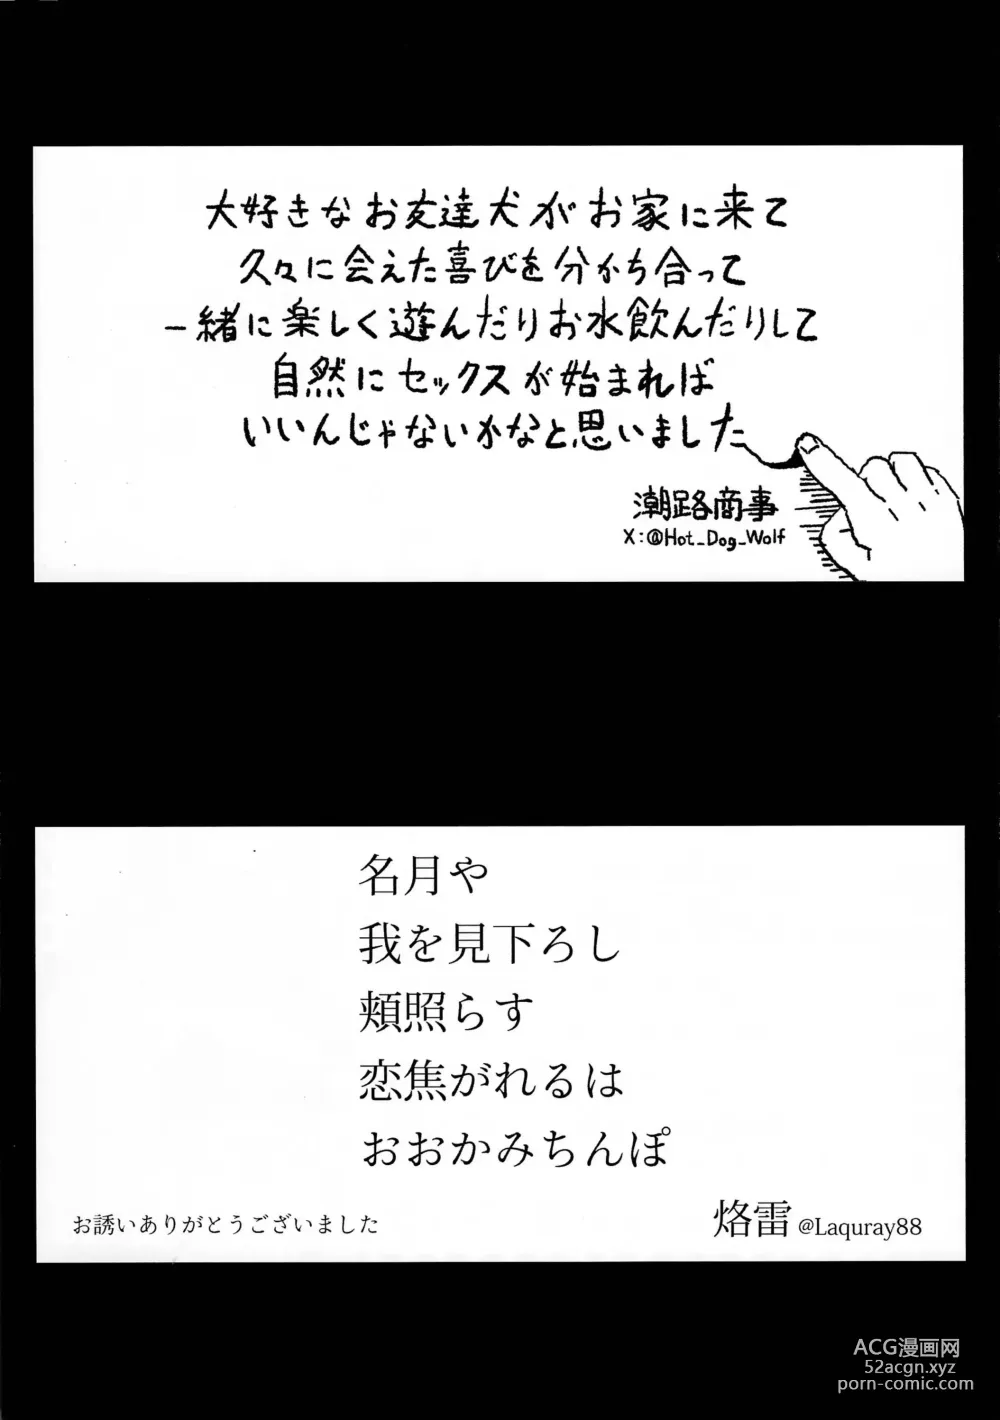 大好きなお友達犬がお家に来て
久々に会えた喜びを分かち合って
一緒に楽しく遊んだりお水飲んだりして
自然にセックスが始まれば
いいんじゃないかなと思いました
潮路商事
X:@Hot_Dog_Wolf
名月や
我を見下ろし
頬照らす
恋焦がれるは
おおかみちんぽ
お誘いありがとうございました
烙雷 @Laquray88
ACG漫画网
52acgn.xyz
porn-comic.com